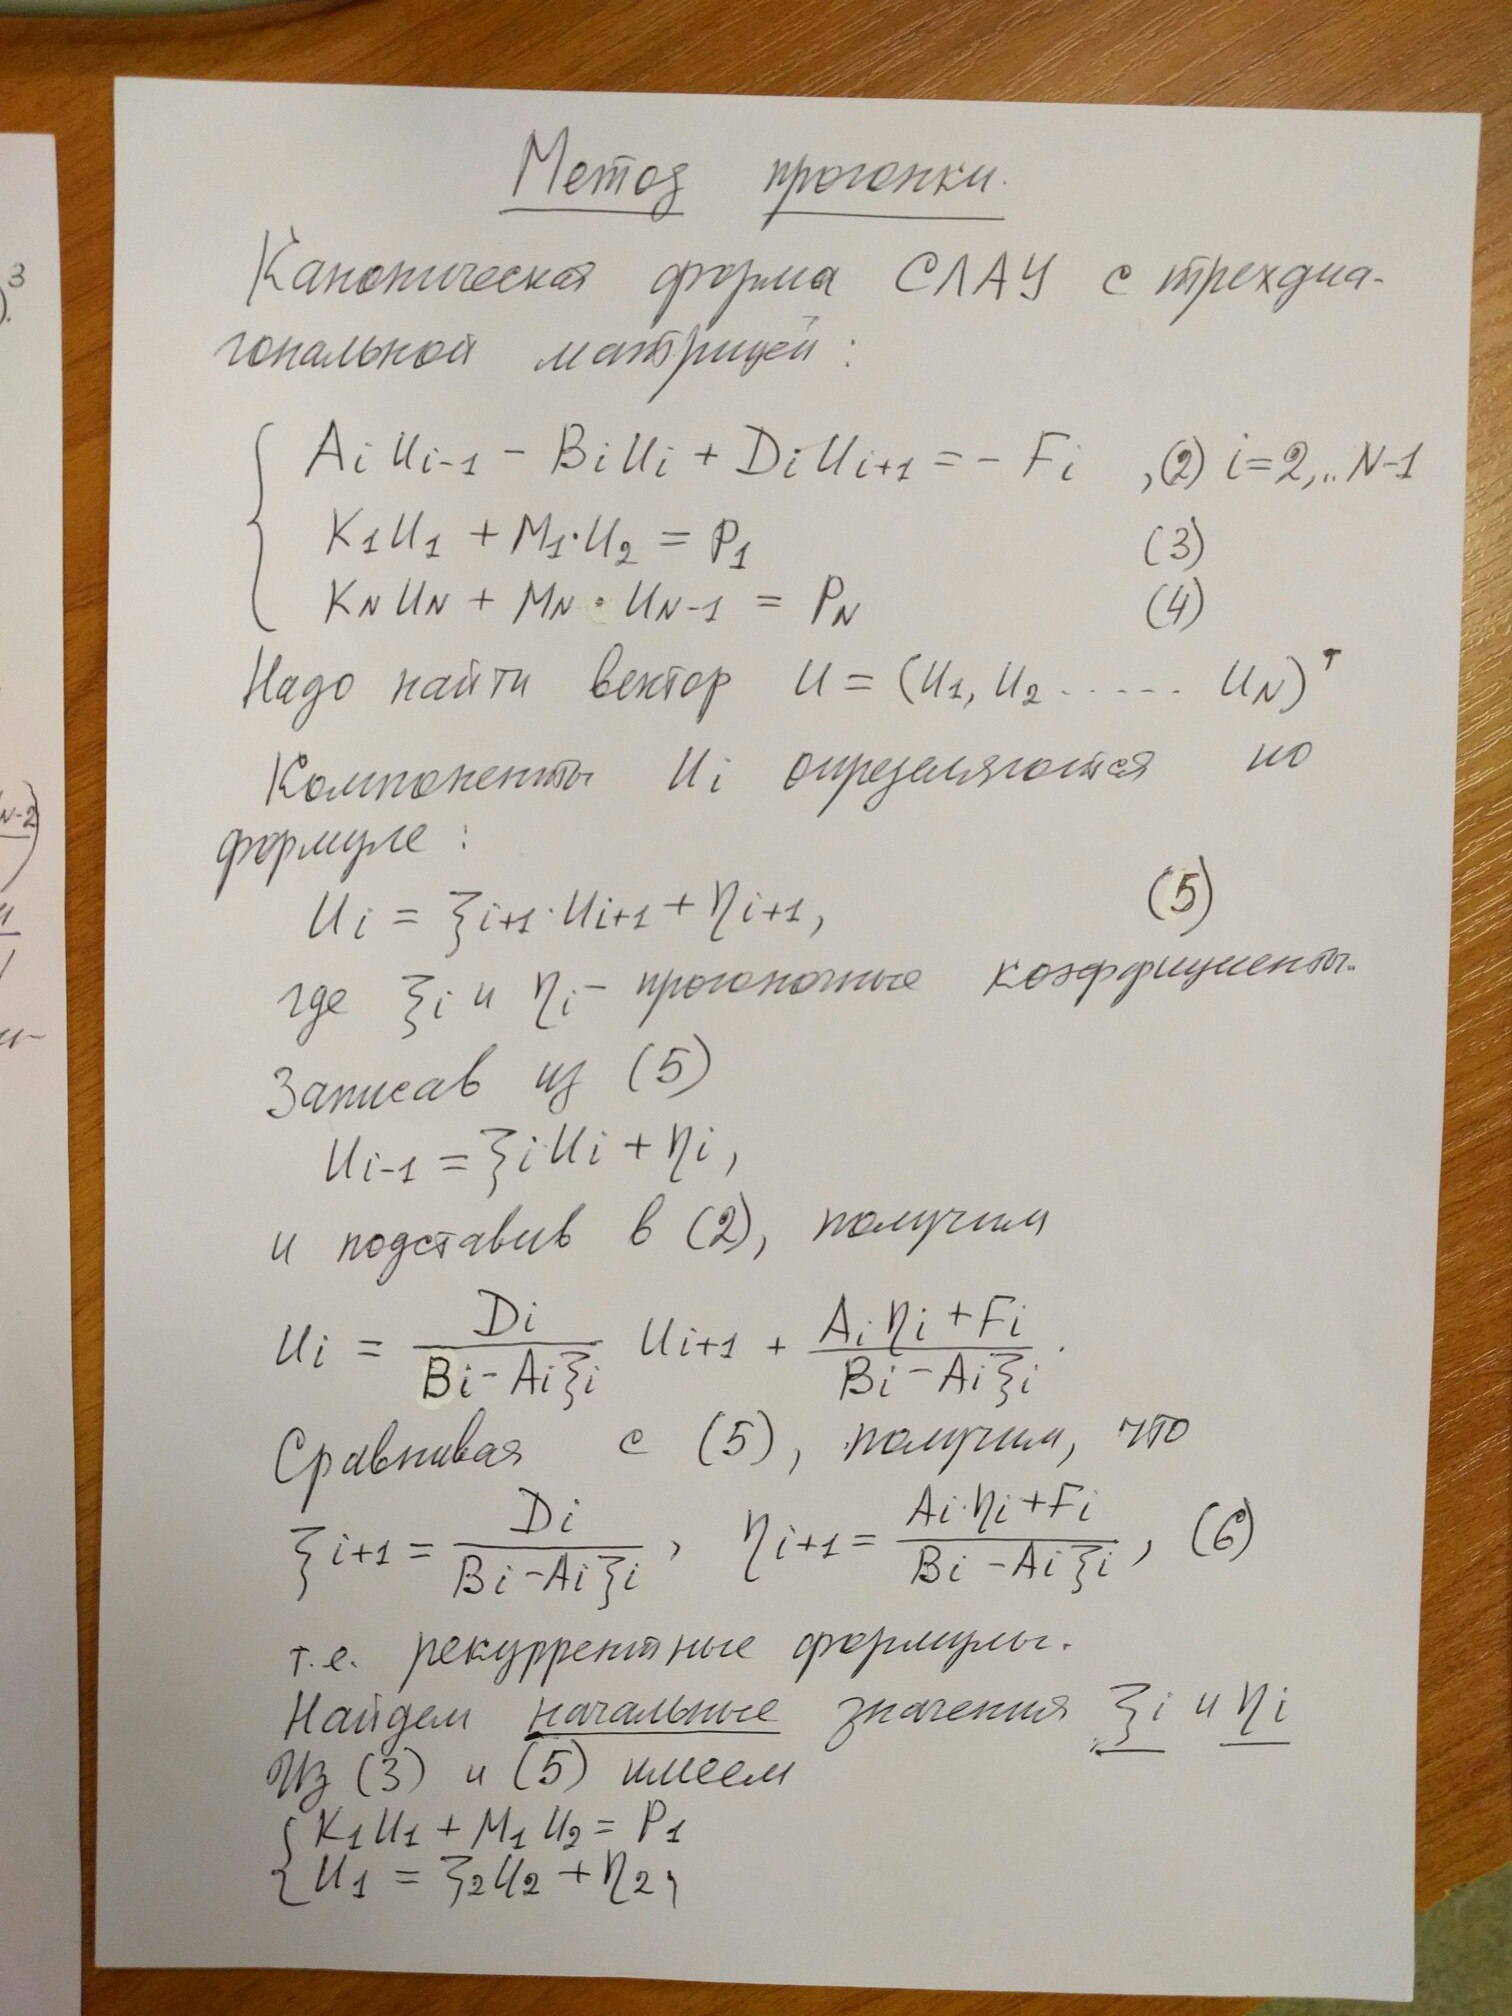 Метод прогонки.
Каноническая форма СЛАУ с трехдиа-
гональной матрицей:
Aᵢ Uᵢ₋₁ - Bᵢ Uᵢ + Dᵢ Uᵢ₊₁ = - Fᵢ , (2) i=2,..N-1
K₁U₁ + M₁·U₂ = P₁ (3)
K_N U_N + M_N · U_N-1 = P_N (4)
Надо найти вектор U = (U₁, U₂ ...... U_N)ᵀ
Компоненты Uᵢ определяются по
формуле:
Uᵢ = ξᵢ₊₁·Uᵢ₊₁ + ηᵢ₊₁, (5)
где ξᵢ и ηᵢ - прогоночные коэффициенты.
Записав из (5)
Uᵢ₋₁ = ξᵢ·Uᵢ + ηᵢ,
и подставив в (2), получим
Uᵢ = Dᵢ / (Bᵢ - Aᵢ ξᵢ) Uᵢ₊₁ + (Aᵢ ηᵢ + Fᵢ) / (Bᵢ - Aᵢ ξᵢ).
Сравнивая с (5), получим, что
ξᵢ₊₁ = Dᵢ / (Bᵢ - Aᵢ ξᵢ), ηᵢ₊₁ = (Aᵢ·ηᵢ + Fᵢ) / (Bᵢ - Aᵢ ξᵢ), (6)
т.е. рекуррентные формулы.
Найдем начальные значения ξᵢ и ηᵢ
Из (3) и (5) имеем
K₁U₁ + M₁U₂ = P₁
U₁ = ξ₂U₂ + η₂,
3
N-2